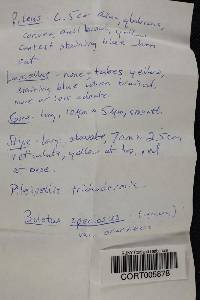 Pileus - 6.5cm diam, glabrous,
convex, dull brown, yellow
context staining blue when
cut.
Lamellae - none - tubes yellow,
staining blue when bruised,
more or less adnate.
Spore - long, 10µm x 5µm, smooth.
Stipe - long, clavate, 7cm x 2.5cm
reticulate, yellow at top, red
at base.
Pileipellis trichodermic
Boletus speciosus
var.
CORT005678